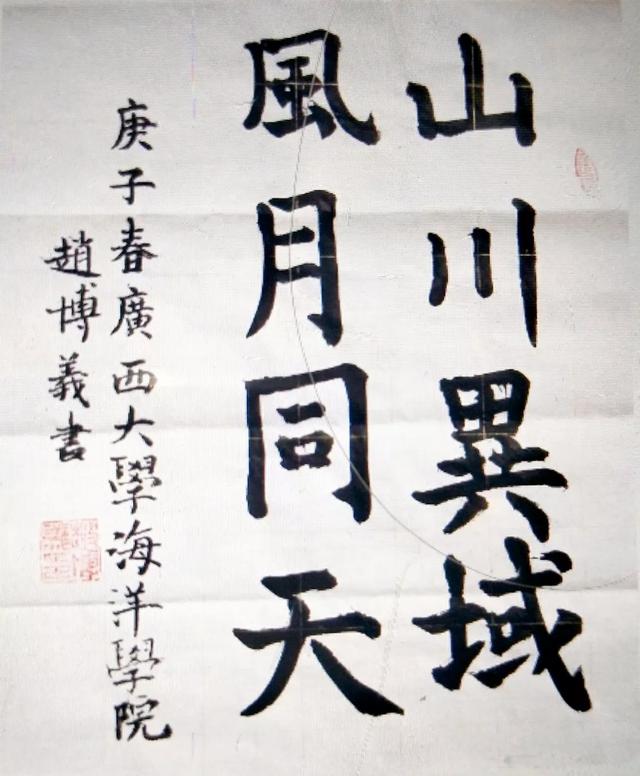 山川異域
風月同天
庚子春廣西大學海洋學院
趙博義書